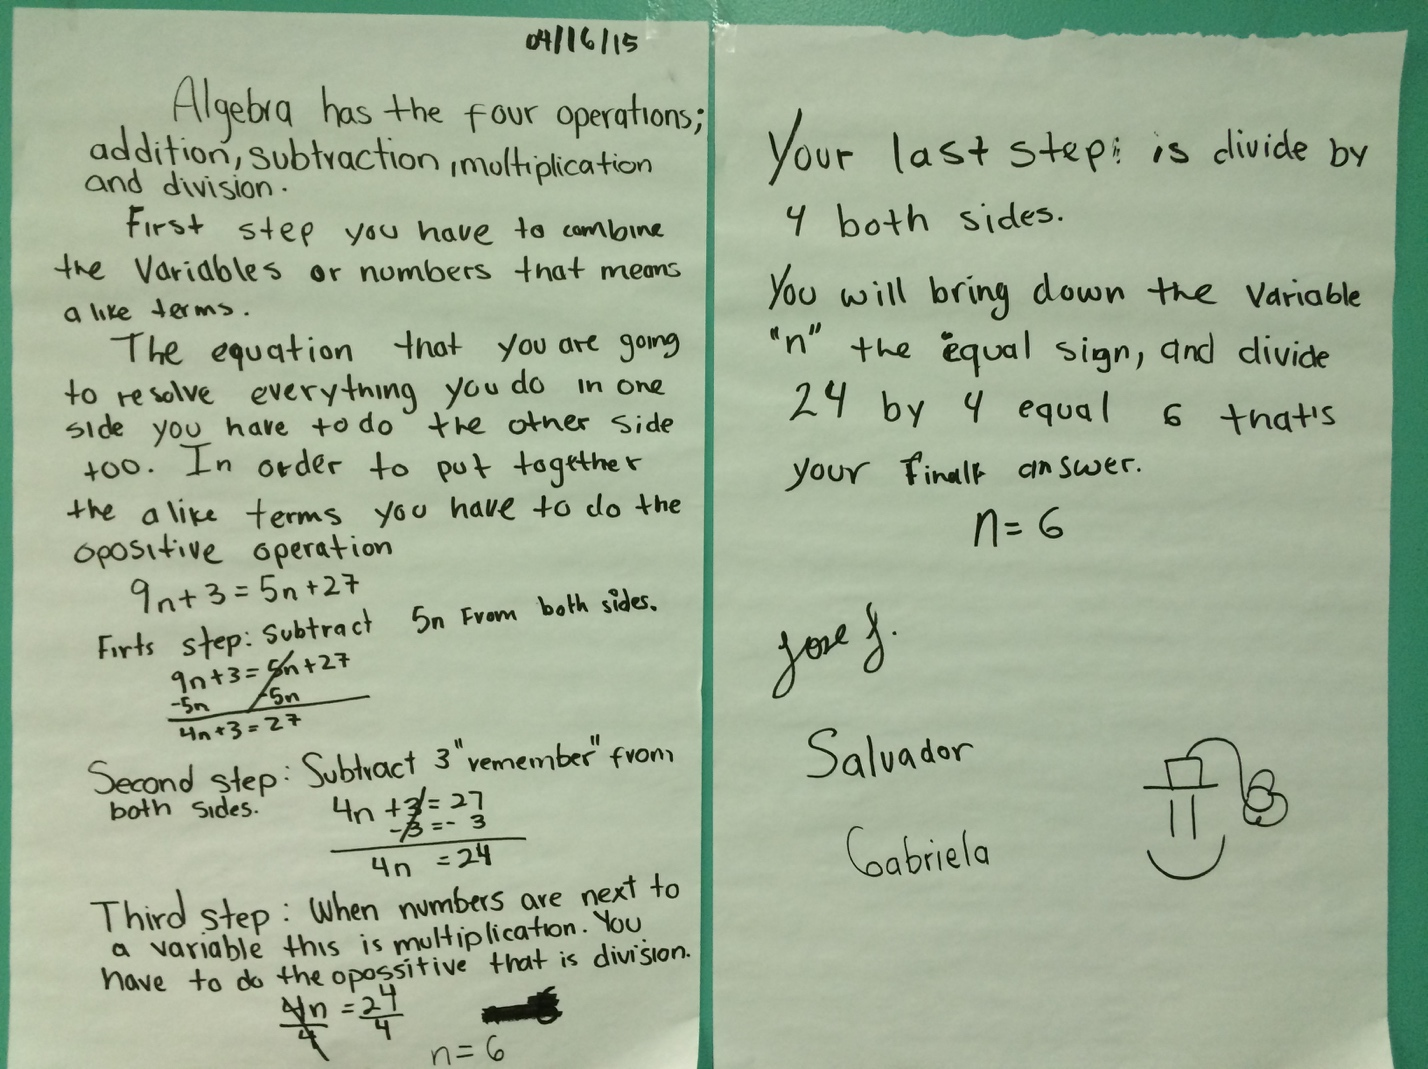 04/16/15
Algebra has the four operations;
addition, subtraction, multiplication
and division.
First step you have to combine
the Variables or numbers that means
a like terms.
The equation that you are going
to resolve everything you do in one
side you have to do the other side
too. In order to put together
the alike terms you have to do the
opositive operation
9n+3=5n+27
Firts step: Subtract 5n From both sides.
9n+3=5n+27
-5n -5n
4n+3=27
Second step: Subtract 3 "remember" from
both sides.
4n+3=27
-3=-3
4n =24
Third step: When numbers are next to
a variable this is multiplication. You
have to do the opossitive that is division.
4n =24
4 4
n=6
Your last step: is divide by
4 both sides.
You will bring down the variable
"n" the equal sign, and divide
24 by 4 equal 6 that's
your answer.
n=6
Jose J.
Salvador
Gabriela